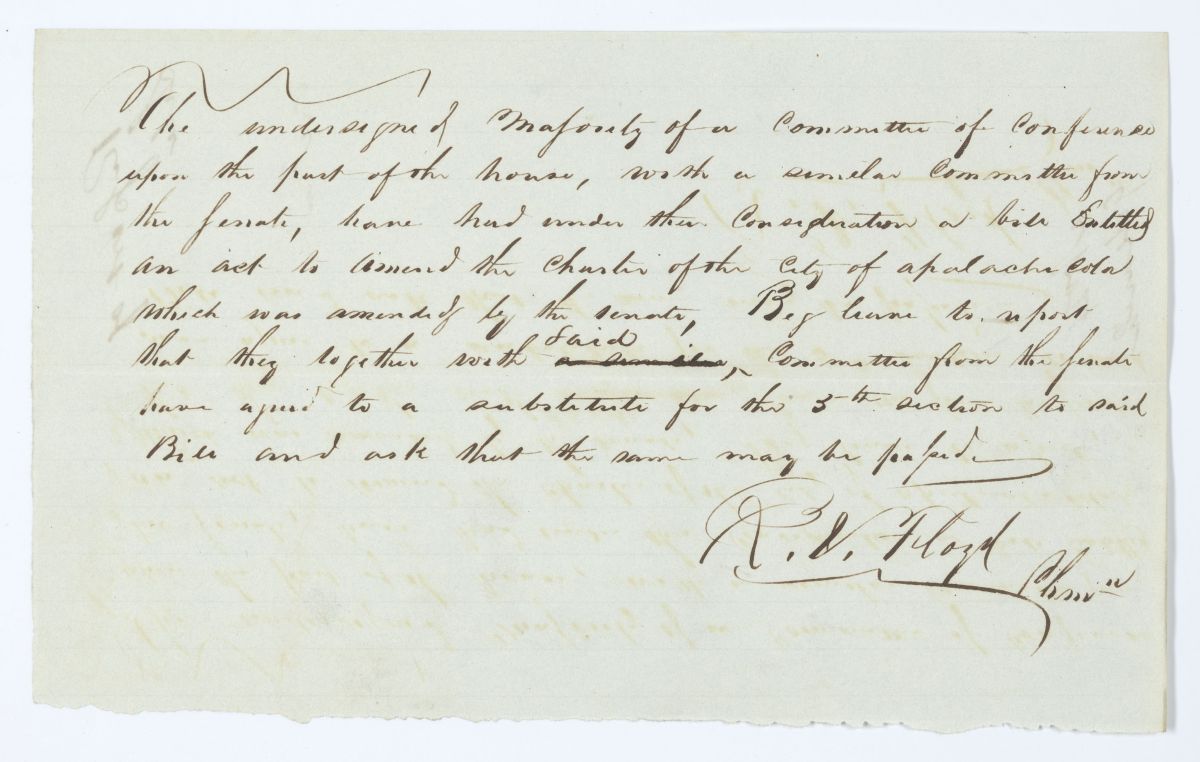 The undersigned Majority of a Committee of Conference
upon the part of the house, with a similar Committee from
the Senate, have had under their Consideration a bill Entitled
an act to amend the Charter of the City of apalachicola
which was amended by the senate, Beg leave to report
that they together with said a similar, Committee from the Senate
have agreed to a substitute for the 5th section to said
Bill and ask that the same may be passed.
R. J. Floyd
Chmn